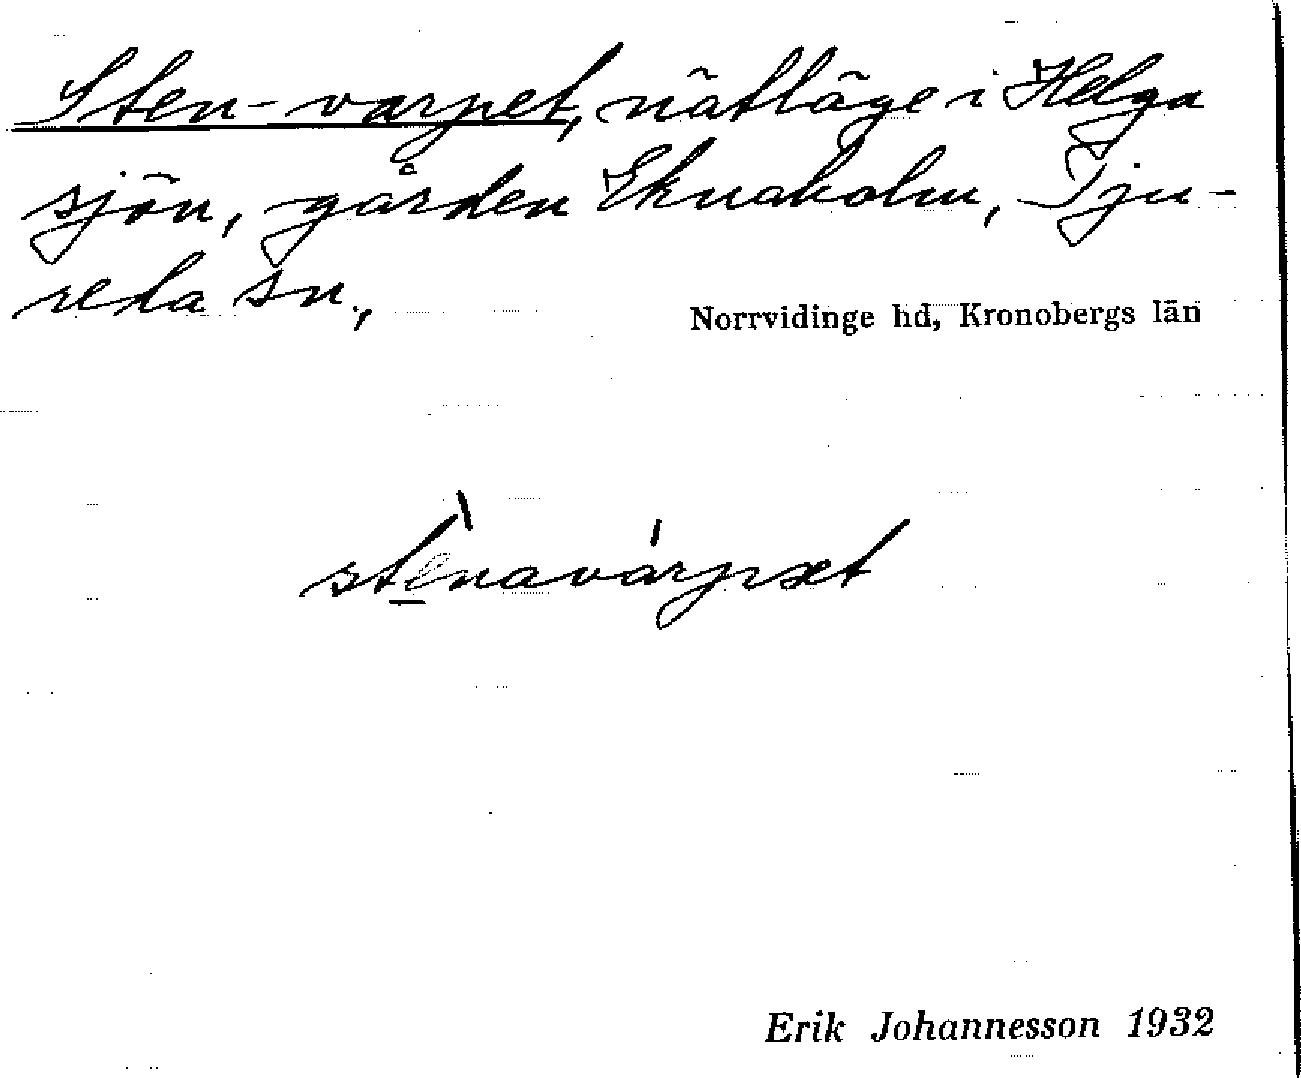 Sten-varpet, nätläge i Helga
sjön, gården Eknaholm, Tju-
reda sn,
Norrvidinge hd, Kronobergs län
stènavárpæt
Erik Johannesson 1932